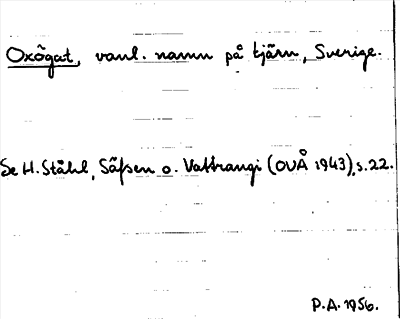 Oxögat, vanl. namn på tjärn, Sverige.
Se H. Ståhl, Säfsen o. Vattrangi (OUÅ 1943), s. 22.
P.A. 1956.